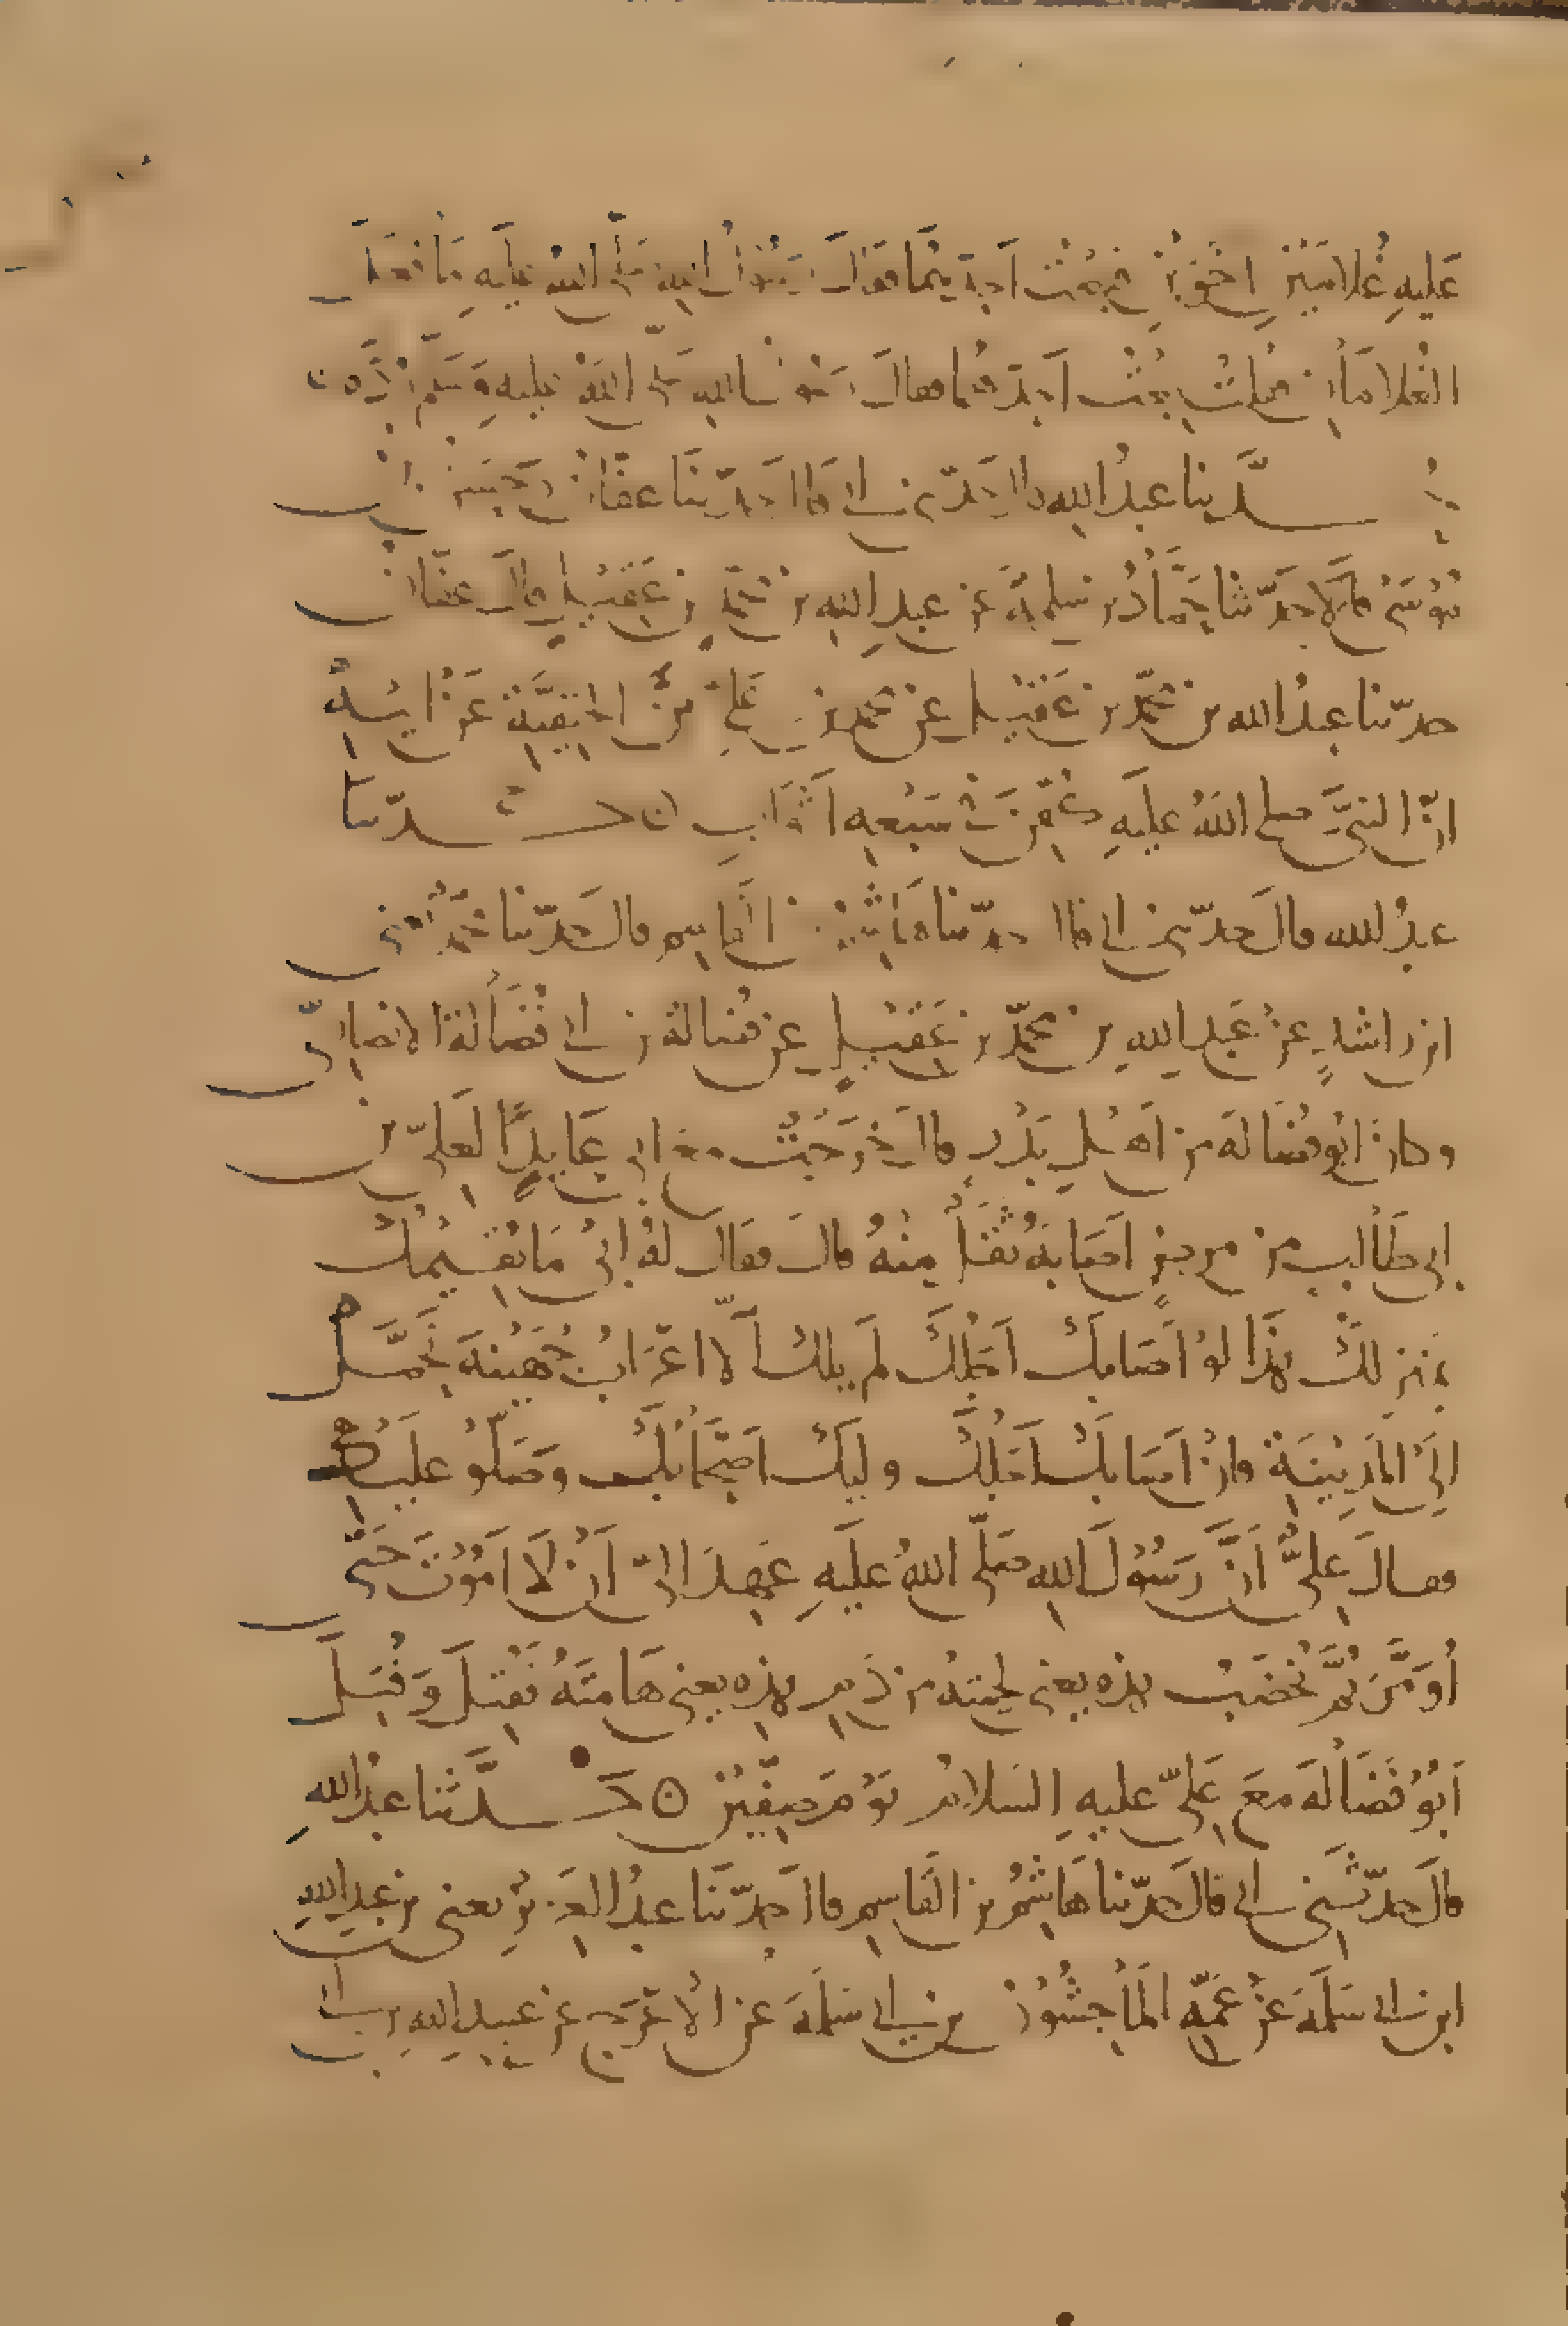 عَليهِ غُلامَيْنِ اخَوَيْنِ فبِعْتُ اَحدَهُمَا فقالَ رَسُولُ اللهِ صَلّى اللهُ عليَهِ مَا فَعَلَ
الغُلامَانِ فقلتُ بِعْتُ اَحدَهُما فقالَ رَسُولُ اللهِ صَلّى اللهُ عليهِ وَسَلّم رُدَّه
حَدَّثنا عبدُ اللهِ قال حَدّثني ابي قال حَدّثنَا عفّانُ وحَسَنُ بن
مُوسَى قالَا حدّثنا حَمّادُ بن سلمَةَ عن عبدِ اللهِ بن محمّدِ بن عَقيْلٍ قالَ عفّانُ
حدّثنا عبدُ الله بن محمّد بن عَقيْلٍ عن محمد بن عَليّ بن الحنفيَّةِ عَنْ ابيْهِ
انّ النبيَّ صلى اللهُ عليَهِ كُفّنَ في سَبْعِهِ اَثْوَابٍ حَدّثنا
عبدُ الله قالَ حدّثني ابي قال حدّثنا هَاشِمُ بن القاسِمِ قال حَدّثنا محمّدٌ يعني
ابن راشدٍ عنْ عَبدِ اللهِ بن محمّد بن عَقيْلٍ عن فُضالة بن ابي فُضَالَة الانصاريّ
وكان ابُو فُضَالَة من اَهْلِ بَدْرٍ قالَ خَرَجْتُ مع ابي عَايِدًا لعَليّ بن
ابى طَالبٍ من مرضٍ اَصَابَهُ ثَقُلَ مِنْهُ قالَ فقال لهُ ابى مَا يُقيْمُكَ
بمنزلكَ هذَا لوْ اَصَابكَ اَجَلُكَ لَم يلكَ اَلّا اعْرَابُ جُهَيْنَةَ تَحَمَّلُ
اِلىَ المَدِيْنَةِ فانْ اَصَابَكَ اَجَلُكَ وليَكَ اَصْحَابُكَ وصَلّوْ عليَكَ
فقالَ عِليٌّ اَنَّ رَسُوْلَ اللهِ صَلّى اللهُ عَليَهِ عَهِدَ اِليّ اَنْ لَا اَمُوْتَ حَتّى
اُؤَمَّرَ ثُمَّ تُخْضَبُ هذه يعني لحيتهُ من دَمِ هذِه يعني هَامَتَهُ فَقُتِلَ وَقُتِلَ
اَبُوْ فُضَالَةَ معَ عَليّ عليهِ السَلامُ يَوْمَ صِفّيْنَ حَدَّثنا عبدُ اللهِ
قالَ حدّثني ابي قالَ حَدّثنا هَاشِمُ بن القَاسِمِ قال حدّثنَا عبدُ العَزيْز يعني بن عبدِ اللهِ
ابن ابي سَلَمَةَ عَنْ عَمّهِ المَاجِشُوْنِ بن ابي سَلَمَةَ عَن الاعْرَجِ عن عُبيدِ اللهِ بن ابي